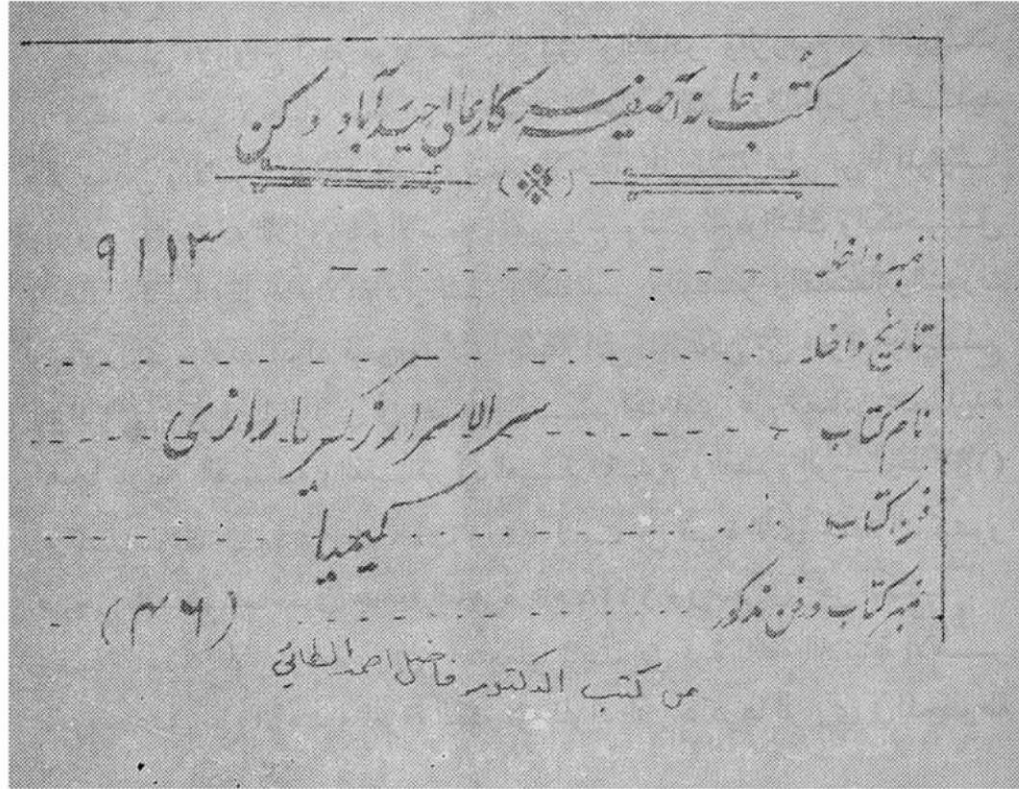 کتب خانہ آصفیہ سرکار عالی حیدرآباد دکن
نمبر داخلہ ۹۱۱۳
تاریخ داخلہ
نام کتاب سر الاسرار زکریا رازی
فن کتاب کیمیا
نمبر کتاب در فن مذکور (۴۶)
من كتب الدكتور فاضل احمد الطائي